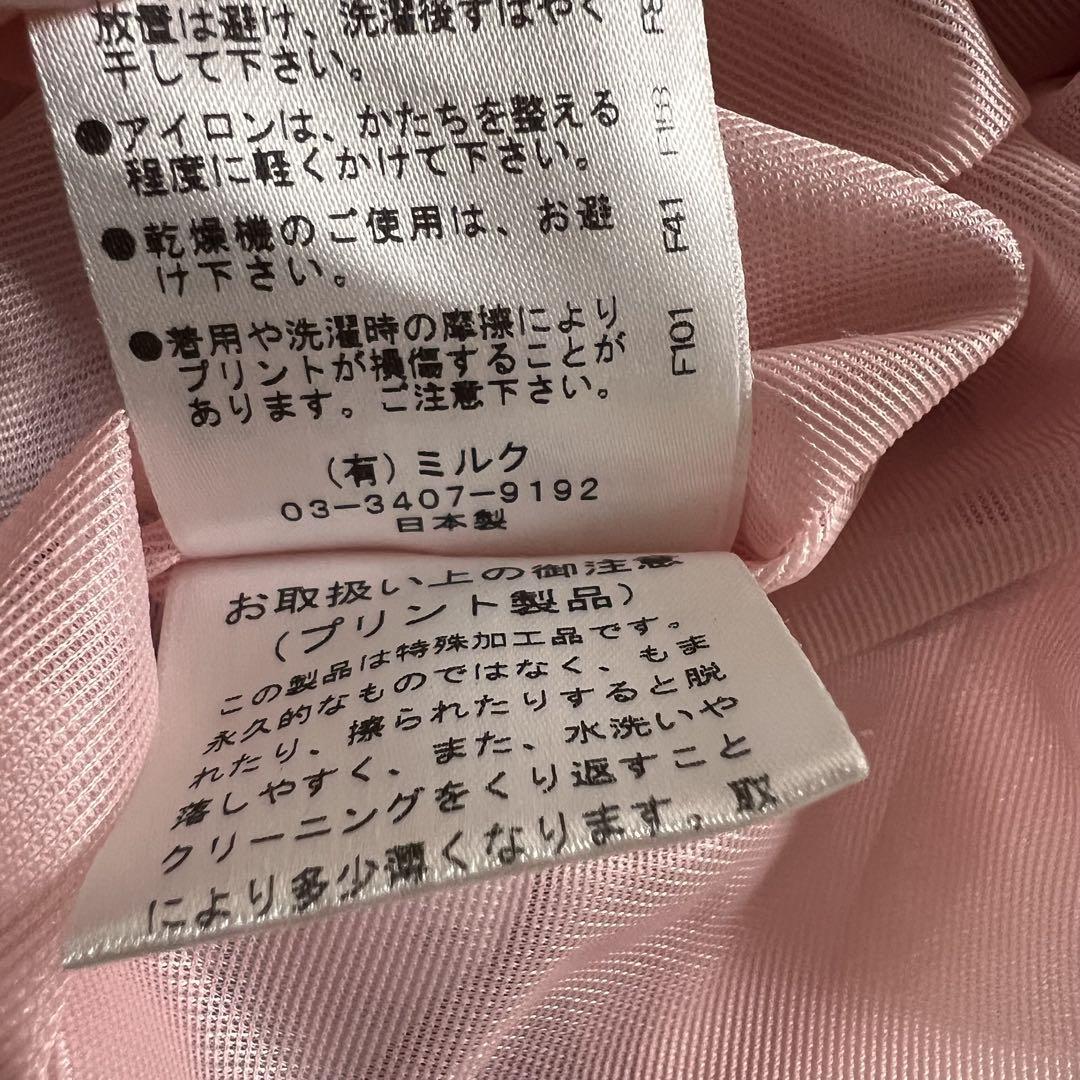 放置は避け、洗濯後すばやく
干して下さい。
●アイロンは、かたちを整える
程度に軽くかけて下さい。
●乾燥機のご使用は、お避
け下さい。
●着用や洗濯時の摩擦により
プリントが損傷することが
あります。ご注意下さい。
(有)ミルク
03-3407-9192
日本製
F41
F101
お取扱い上の御注意
(プリント製品)
この製品は特殊加工品です。
永久的なものではなく、もま
れたり、擦られたりすると脱
落しやすく、また、水洗いや
クリーニングをくり返すこと
により多少薄くなります。取